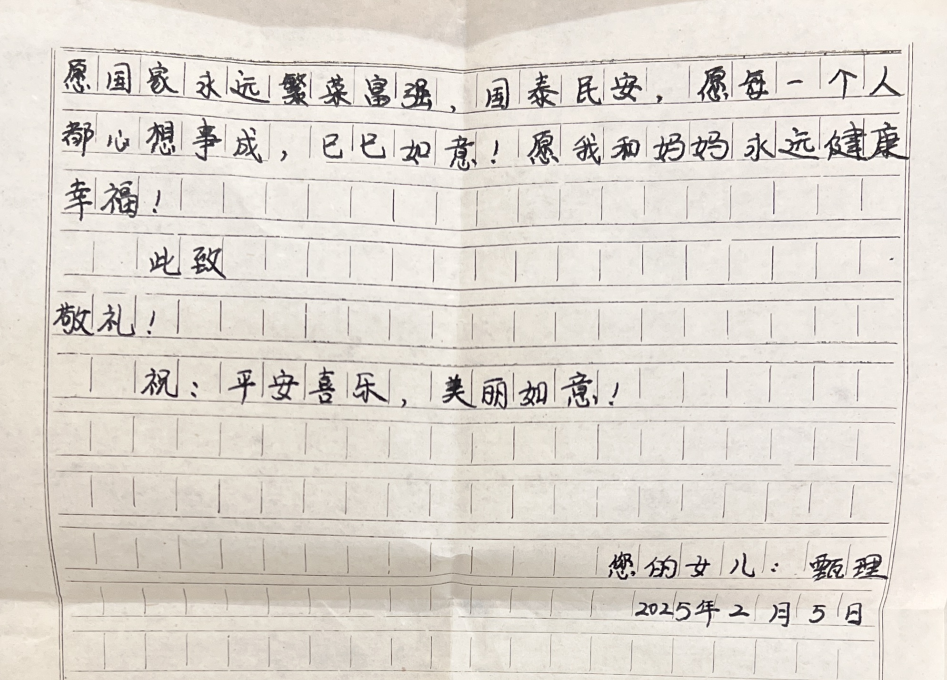 愿国家永远繁荣富强，国泰民安，愿每一个人
都心想事成，巳巳如意！愿我和妈妈永远健康
幸福！
此致
敬礼！
祝：平安喜乐，美丽如意！
您的女儿：甄理
2025年2月5日